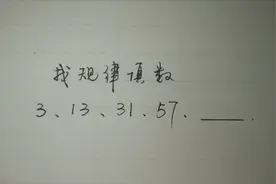 找规律填数
3、13、31、57、____.